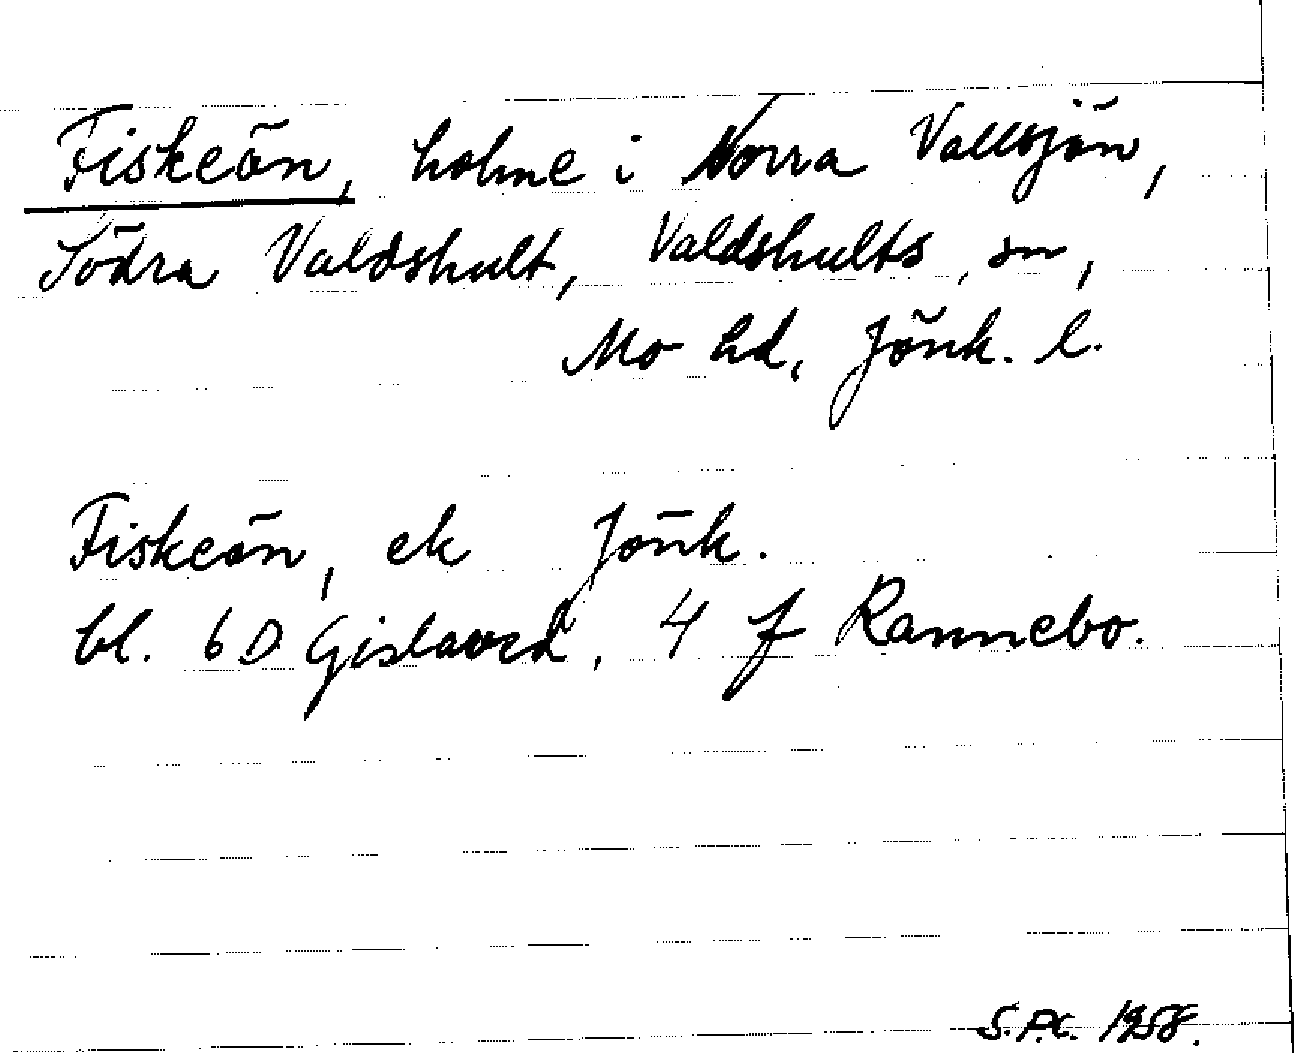 Fiskeön, holme i Norra Vallsjön,
Södra Valdshult, Valdshults sn,
Mo hd, Jönk. l.
Fiskeön, ek Jönk.
bl. 6 D Gislaved, 4 f Rannebo.
S.P.C. 1958.